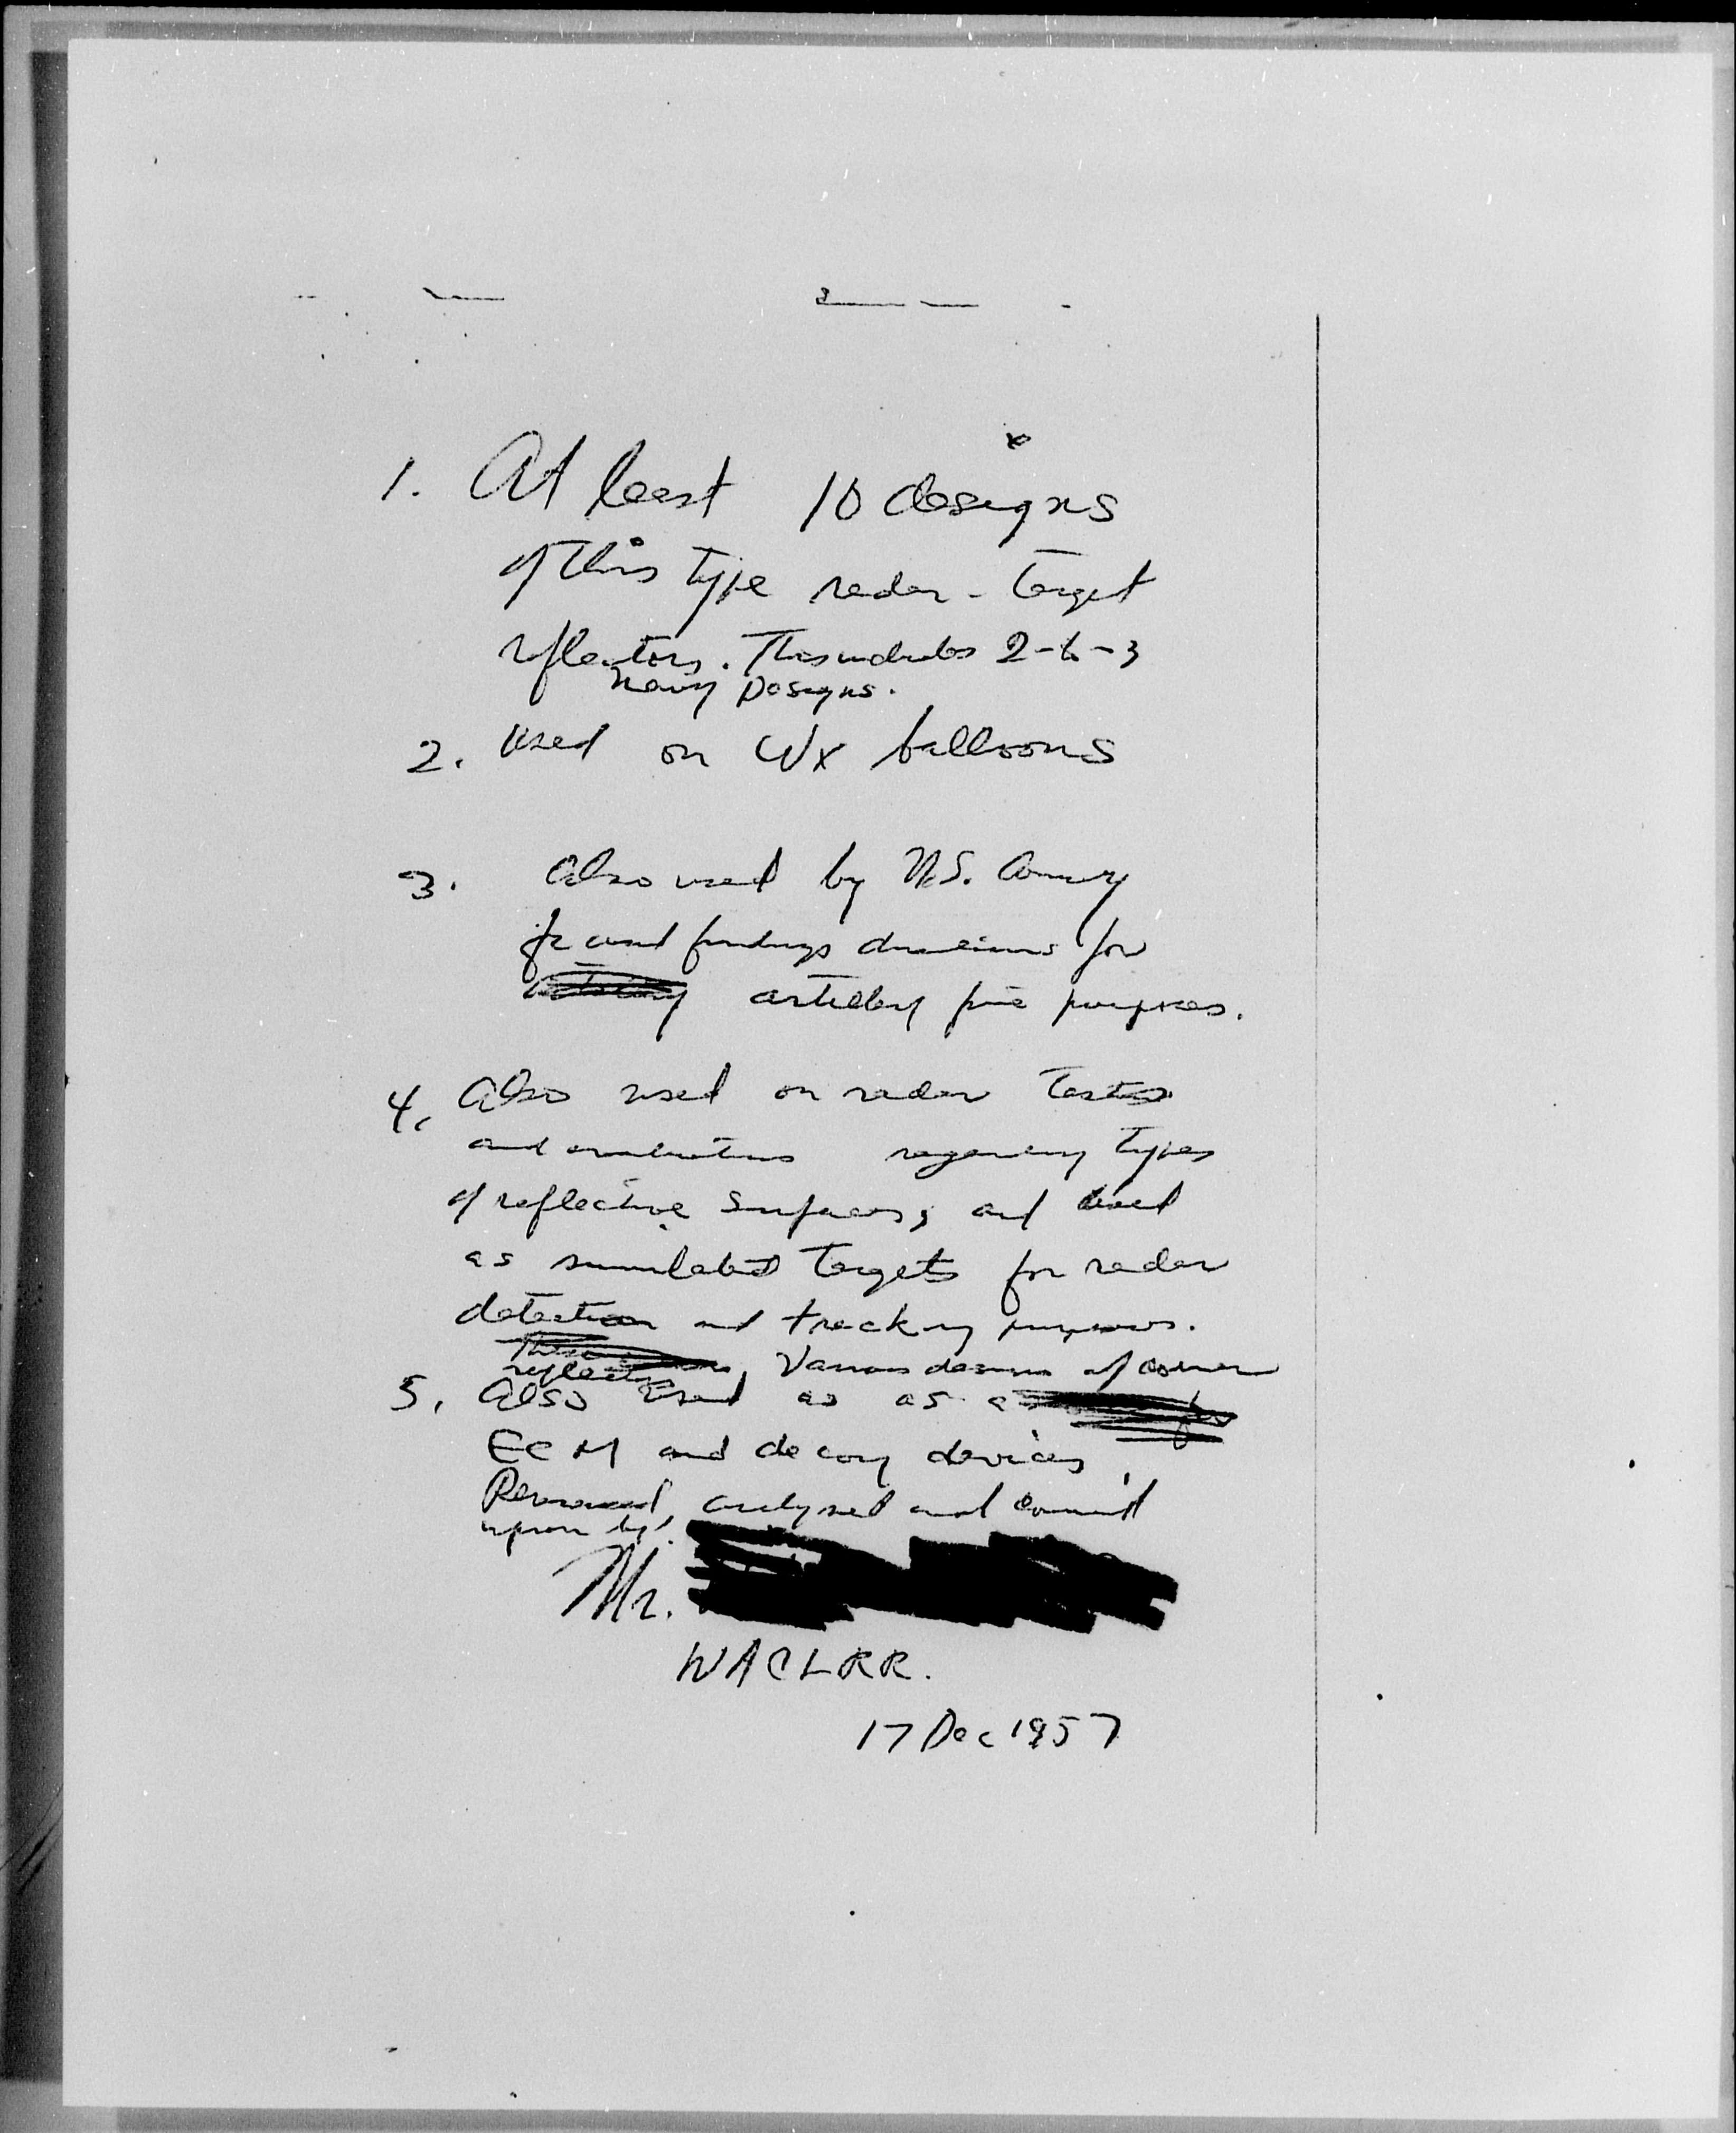 1. At least 10 designs
of this type radar - target
reflectors. This includes 2-6-3
Navy Designs.
2. Used on Wx balloons
3. Also used by U.S. Army
for wind findings directions for
artillery fire purposes.
4. Also used on radar tests
and evaluations regarding types
of reflective surfaces, and used
as simulated targets for radar
detection and tracking purposes.
These
reflectors, Various designs of corner
5. Also used as as a
ECM and decoy devices.
Reviewed, analysed and comment
upon by:
Mr.
WACLRR.
17 Dec 1957